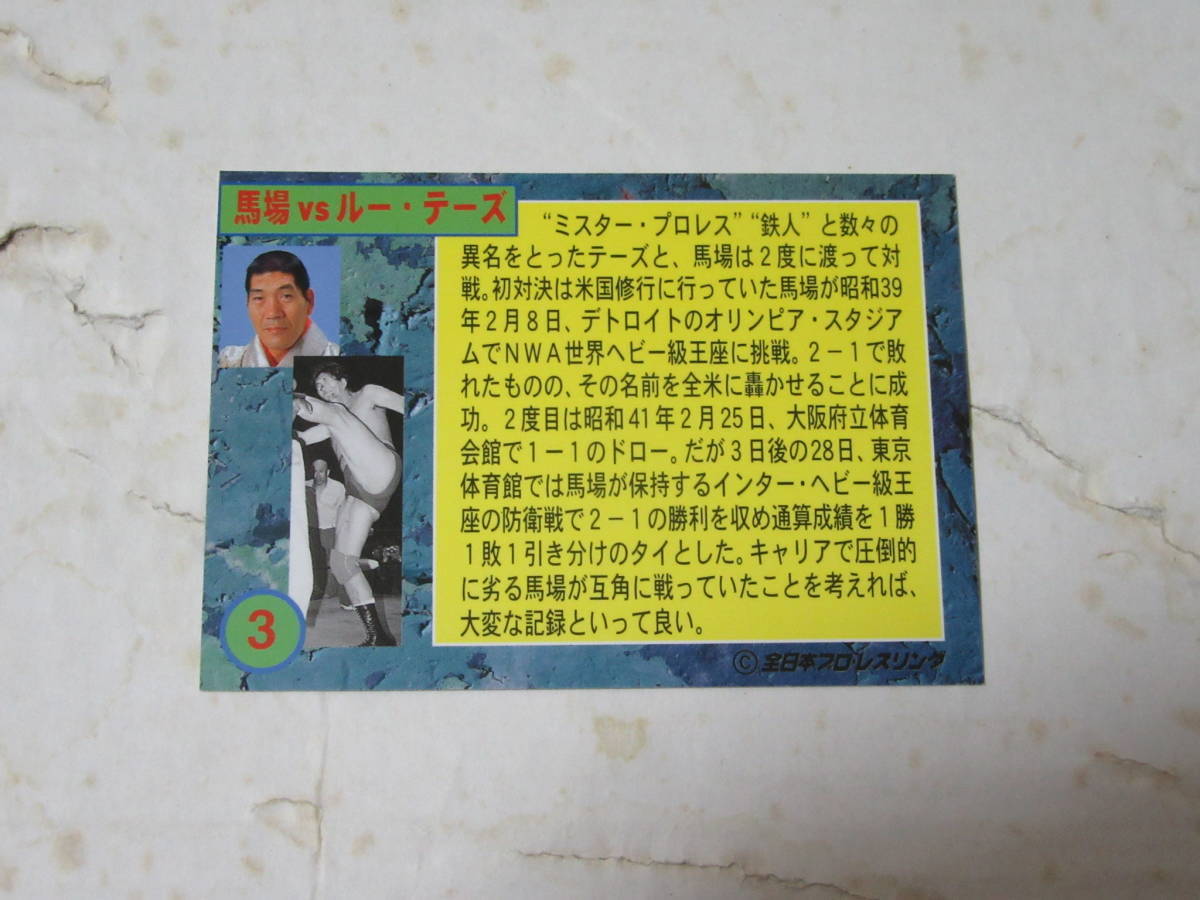 馬場 vs ルー・テーズ
“ミスター・プロレス”“鉄人”と数々の
異名をとったテーズと、馬場は2度に渡って対
戦。初対決は米国修行に行っていた馬場が昭和39
年2月8日、デトロイトのオリンピア・スタジア
ムでNWA世界ヘビー級王座に挑戦。2－1で敗
れたものの、その名前を全米に轟かせることに成
功。2度目は昭和41年2月25日、大阪府立体育
会館で1－1のドロー。だが3日後の28日、東京
体育館では馬場が保持するインター・ヘビー級王
座の防衛戦で2－1の勝利を収め通算成績を1勝
1敗1引き分けのタイとした。キャリアで圧倒的
に劣る馬場が互角に戦っていたことを考えれば、
大変な記録といって良い。
3
©全日本プロ・レスリング